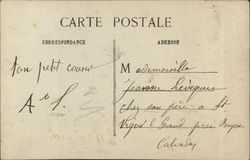 CARTE POSTALE
CORRESPONDANCE
ADRESSE
Ton petit cousin
Mademoiselle
Jeanne
chez son père à St
Vigor le Grand près Bayeux
Calvados